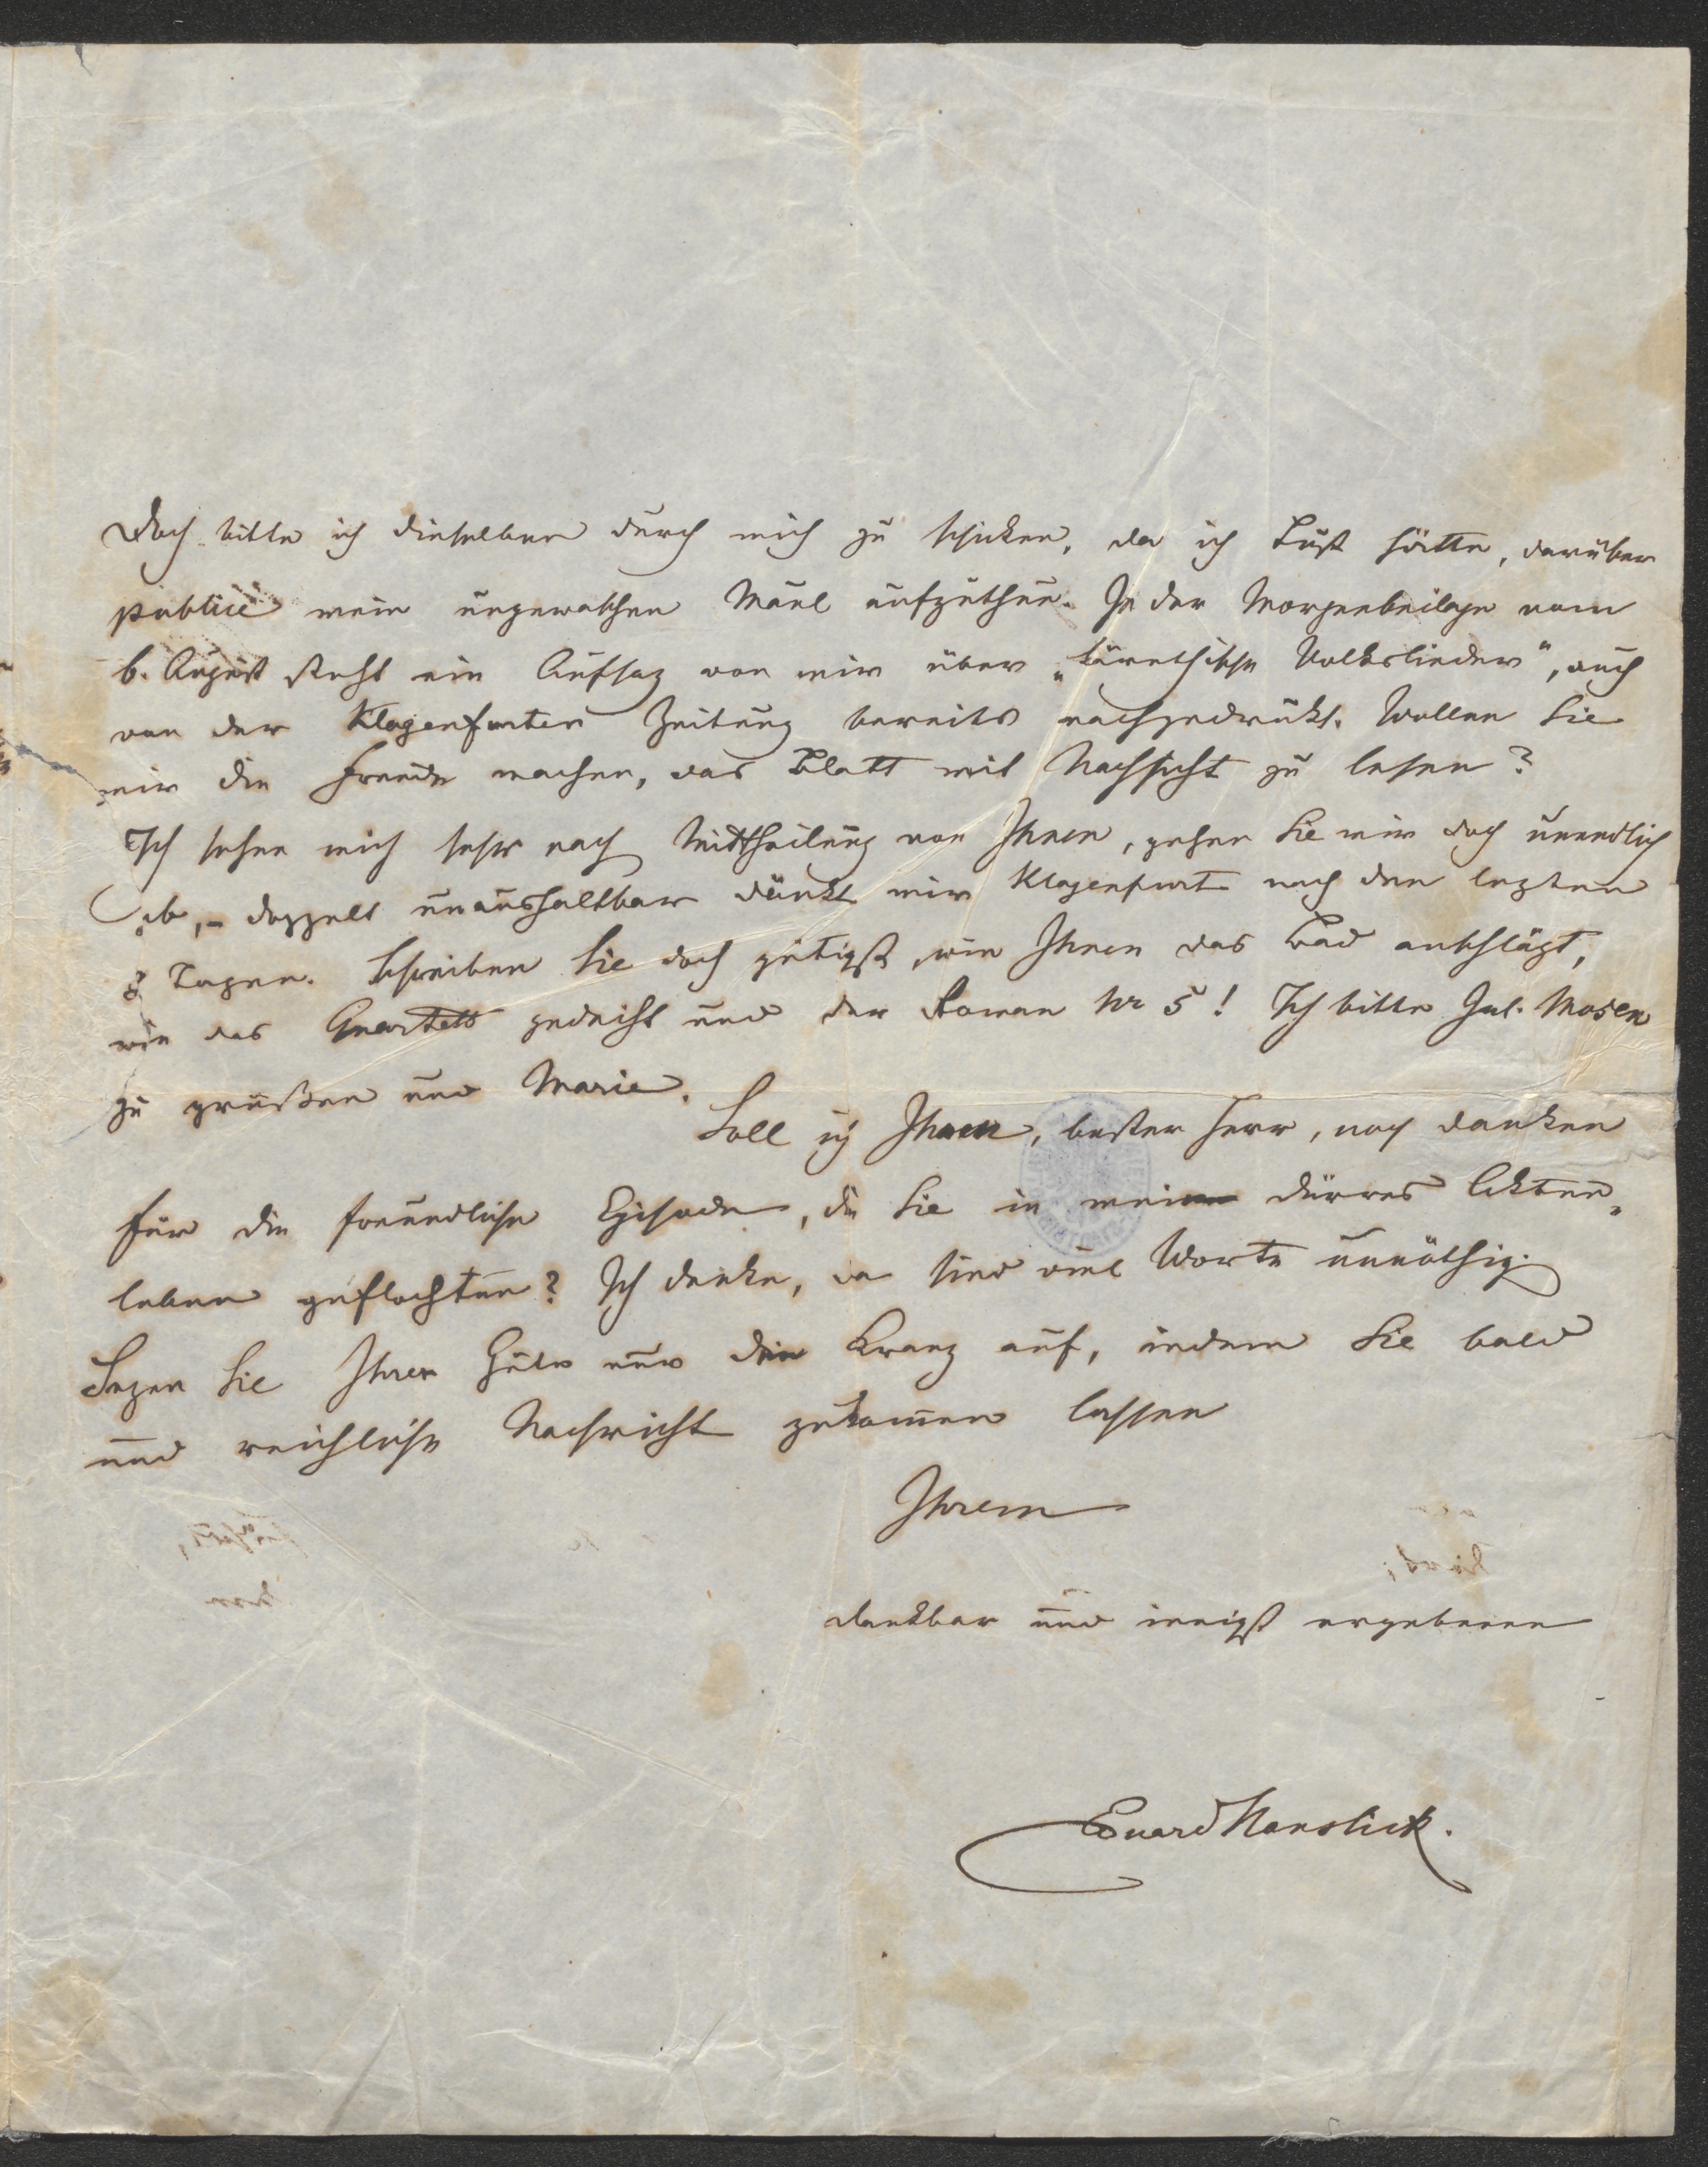 Doch bitte ich dieselben durch mich zu schicken, da ich Lust hätte, darüber
publice mein ungewaschen Maul aufzuthun. In der Morgenbeilage vom
6. August steht ein Aufsaz von mir über „kärnthische Volkslieder“, auch
von der Klagenfurter Zeitung bereits nachgedrukt. Wollen Sie
mir die Freude machen, das Blatt mit Nachsicht zu lesen?
Ich sehne mich sehr nach Mittheilung von Ihnen, gehen Sie mir doch unendlich
ab, – doppelt unaushaltbar dünkt mir Klagenfurt nach den lezten
8 Tagen. Schreiben Sie doch gütigst, wie Ihnen das Bad anschlägt,
wie das Quartett gedeiht und der Roman Nr 5! Ich bitte Jul. Mosen
zu grüßen und Marie.
Soll ich Ihnen, bester Herr, noch danken
für die freundliche Episode, die Sie in mein dürres Akten„
leben geflochten? Ich denke, da sind viel Worte unnöthig.
Sezen Sie Ihrer Güte nur den Kranz auf, indem Sie bald
und reichliche Nachricht zukom̅en lassen
Ihrem
dankbar und innigst ergebenen
Eduard Hanslick.